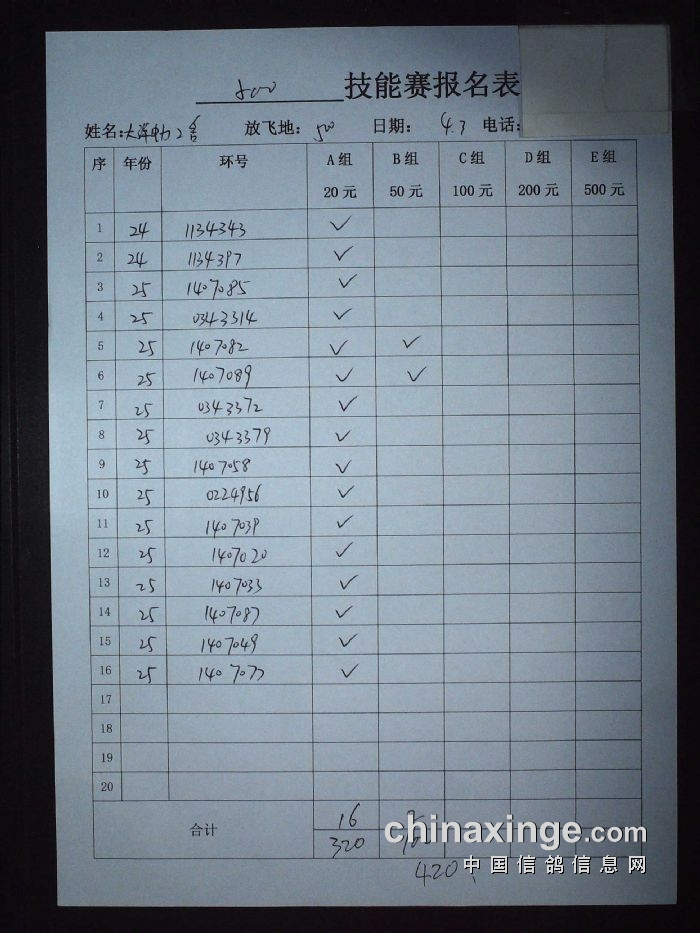 500 技能赛报名表
姓名: 大洋电力2舍 放飞地: 500 日期: 4.7 电话:
序 年份 环号 A组 B组 C组 D组 E组
20元 50元 100元 200元 500元
1 24 1134343 ✓
2 24 1134397 ✓
3 25 1407085 ✓
4 25 0343314 ✓
5 25 1407082 ✓ ✓
6 25 1407089 ✓ ✓
7 25 0343372 ✓
8 25 0343379 ✓
9 25 1407058 ✓
10 25 0224956 ✓
11 25 1407039 ✓
12 25 1407020 ✓
13 25 1407033 ✓
14 25 1407087 ✓
15 25 1407049 ✓
16 25 1407077 ✓
17
18
19
20
合计 16
320 100
420
chinaxinge.com
中国信鸽信息网